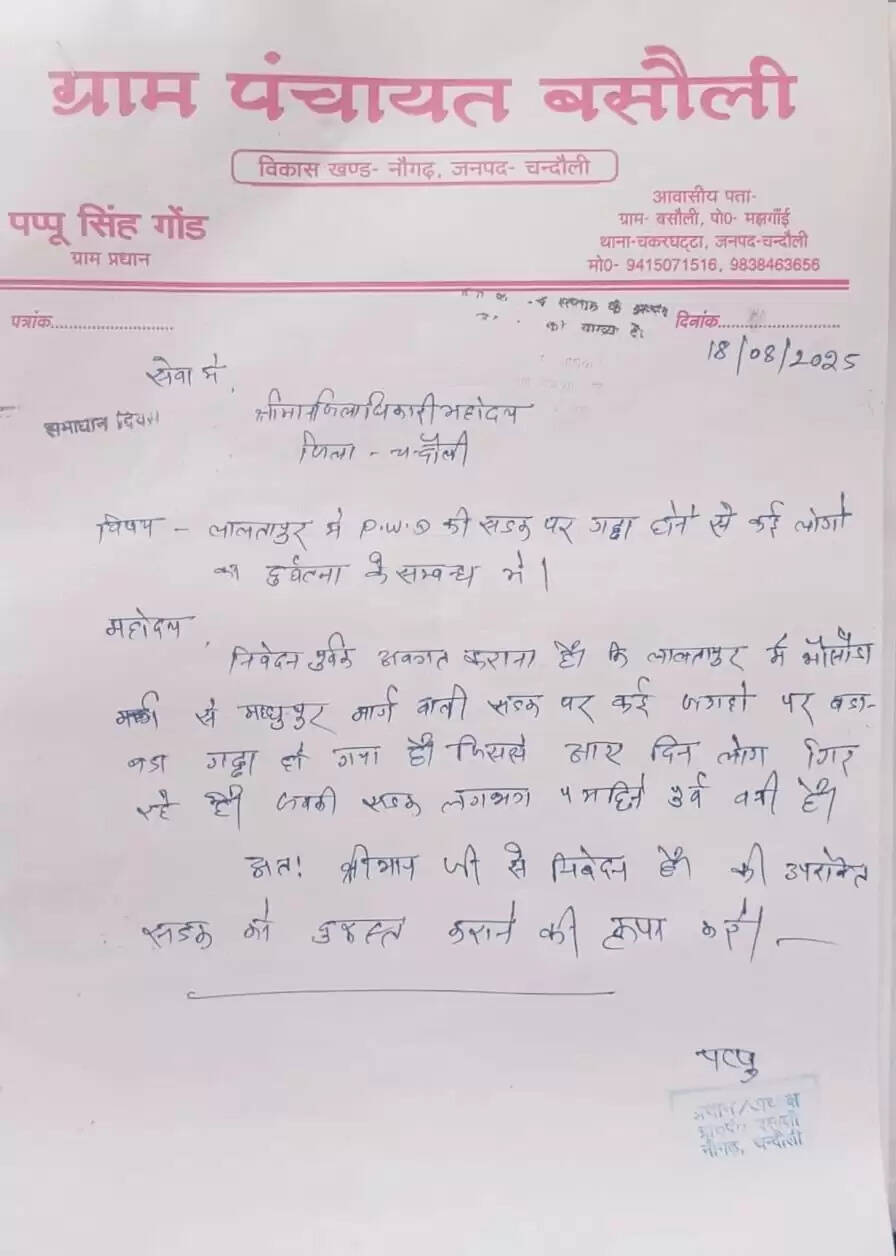 ग्राम पंचायत बसौली
विकास खण्ड- नौगढ़, जनपद- चन्दौली
पप्पू सिंह गोंड
ग्राम प्रधान
आवासीय पता-
ग्राम- बसौली, पो0- मझगाँई
थाना-चकरघट्टा, जनपद-चन्दौली
मो0- 9415071516, 9838463656
पत्रांक.............................
दिनांक.............................
18/08/2025
सेवा में,
समाधान दिवस
श्रीमान जिलाधिकारी महोदय
जिला - चन्दौली
विषय - लालतापुर में P.W.D की सडक पर गड्ढा होने से कई लोगो
का दुर्घटना के सम्बन्ध में।
महोदय,
निवेदन पुर्वक अवगत कराना है। कि लालतापुर में
से मधुपुर मार्ग वाली सडक पर कई जगहो पर बडा-
बडा गड्ढा हो गया है। जिससे आए दिन लोग गिर
रहे है। जबकी सडक लगभग महिने पुर्व बनी है।
अतः श्रीमान जी से निवेदन है। की उपरोक्त
सडक को दुरूस्त कराने की कृपा करें।
पप्पु
प्रधान/अध्यक्ष
नौगढ़, चन्दौली